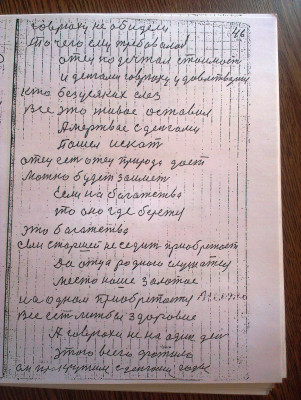 46
говряху не обидели
То чего ему требовалос
отец подечтал стоимост
и денгами говряху удовлетварил
кто без усяких слез
Все это живое оставил
А мертвае с денгами
Пошел искат
отец ест отец природа дает
можно будет заимет
Если на богатство
то оно где берету
это богатство
Если старшей не седит приобретает
Да отца родного слушатеу
место наше золотое
на одном приобретому
Все ест мнбы здоровие
А говряхи не на один ден
этого всего
он с денгами годы